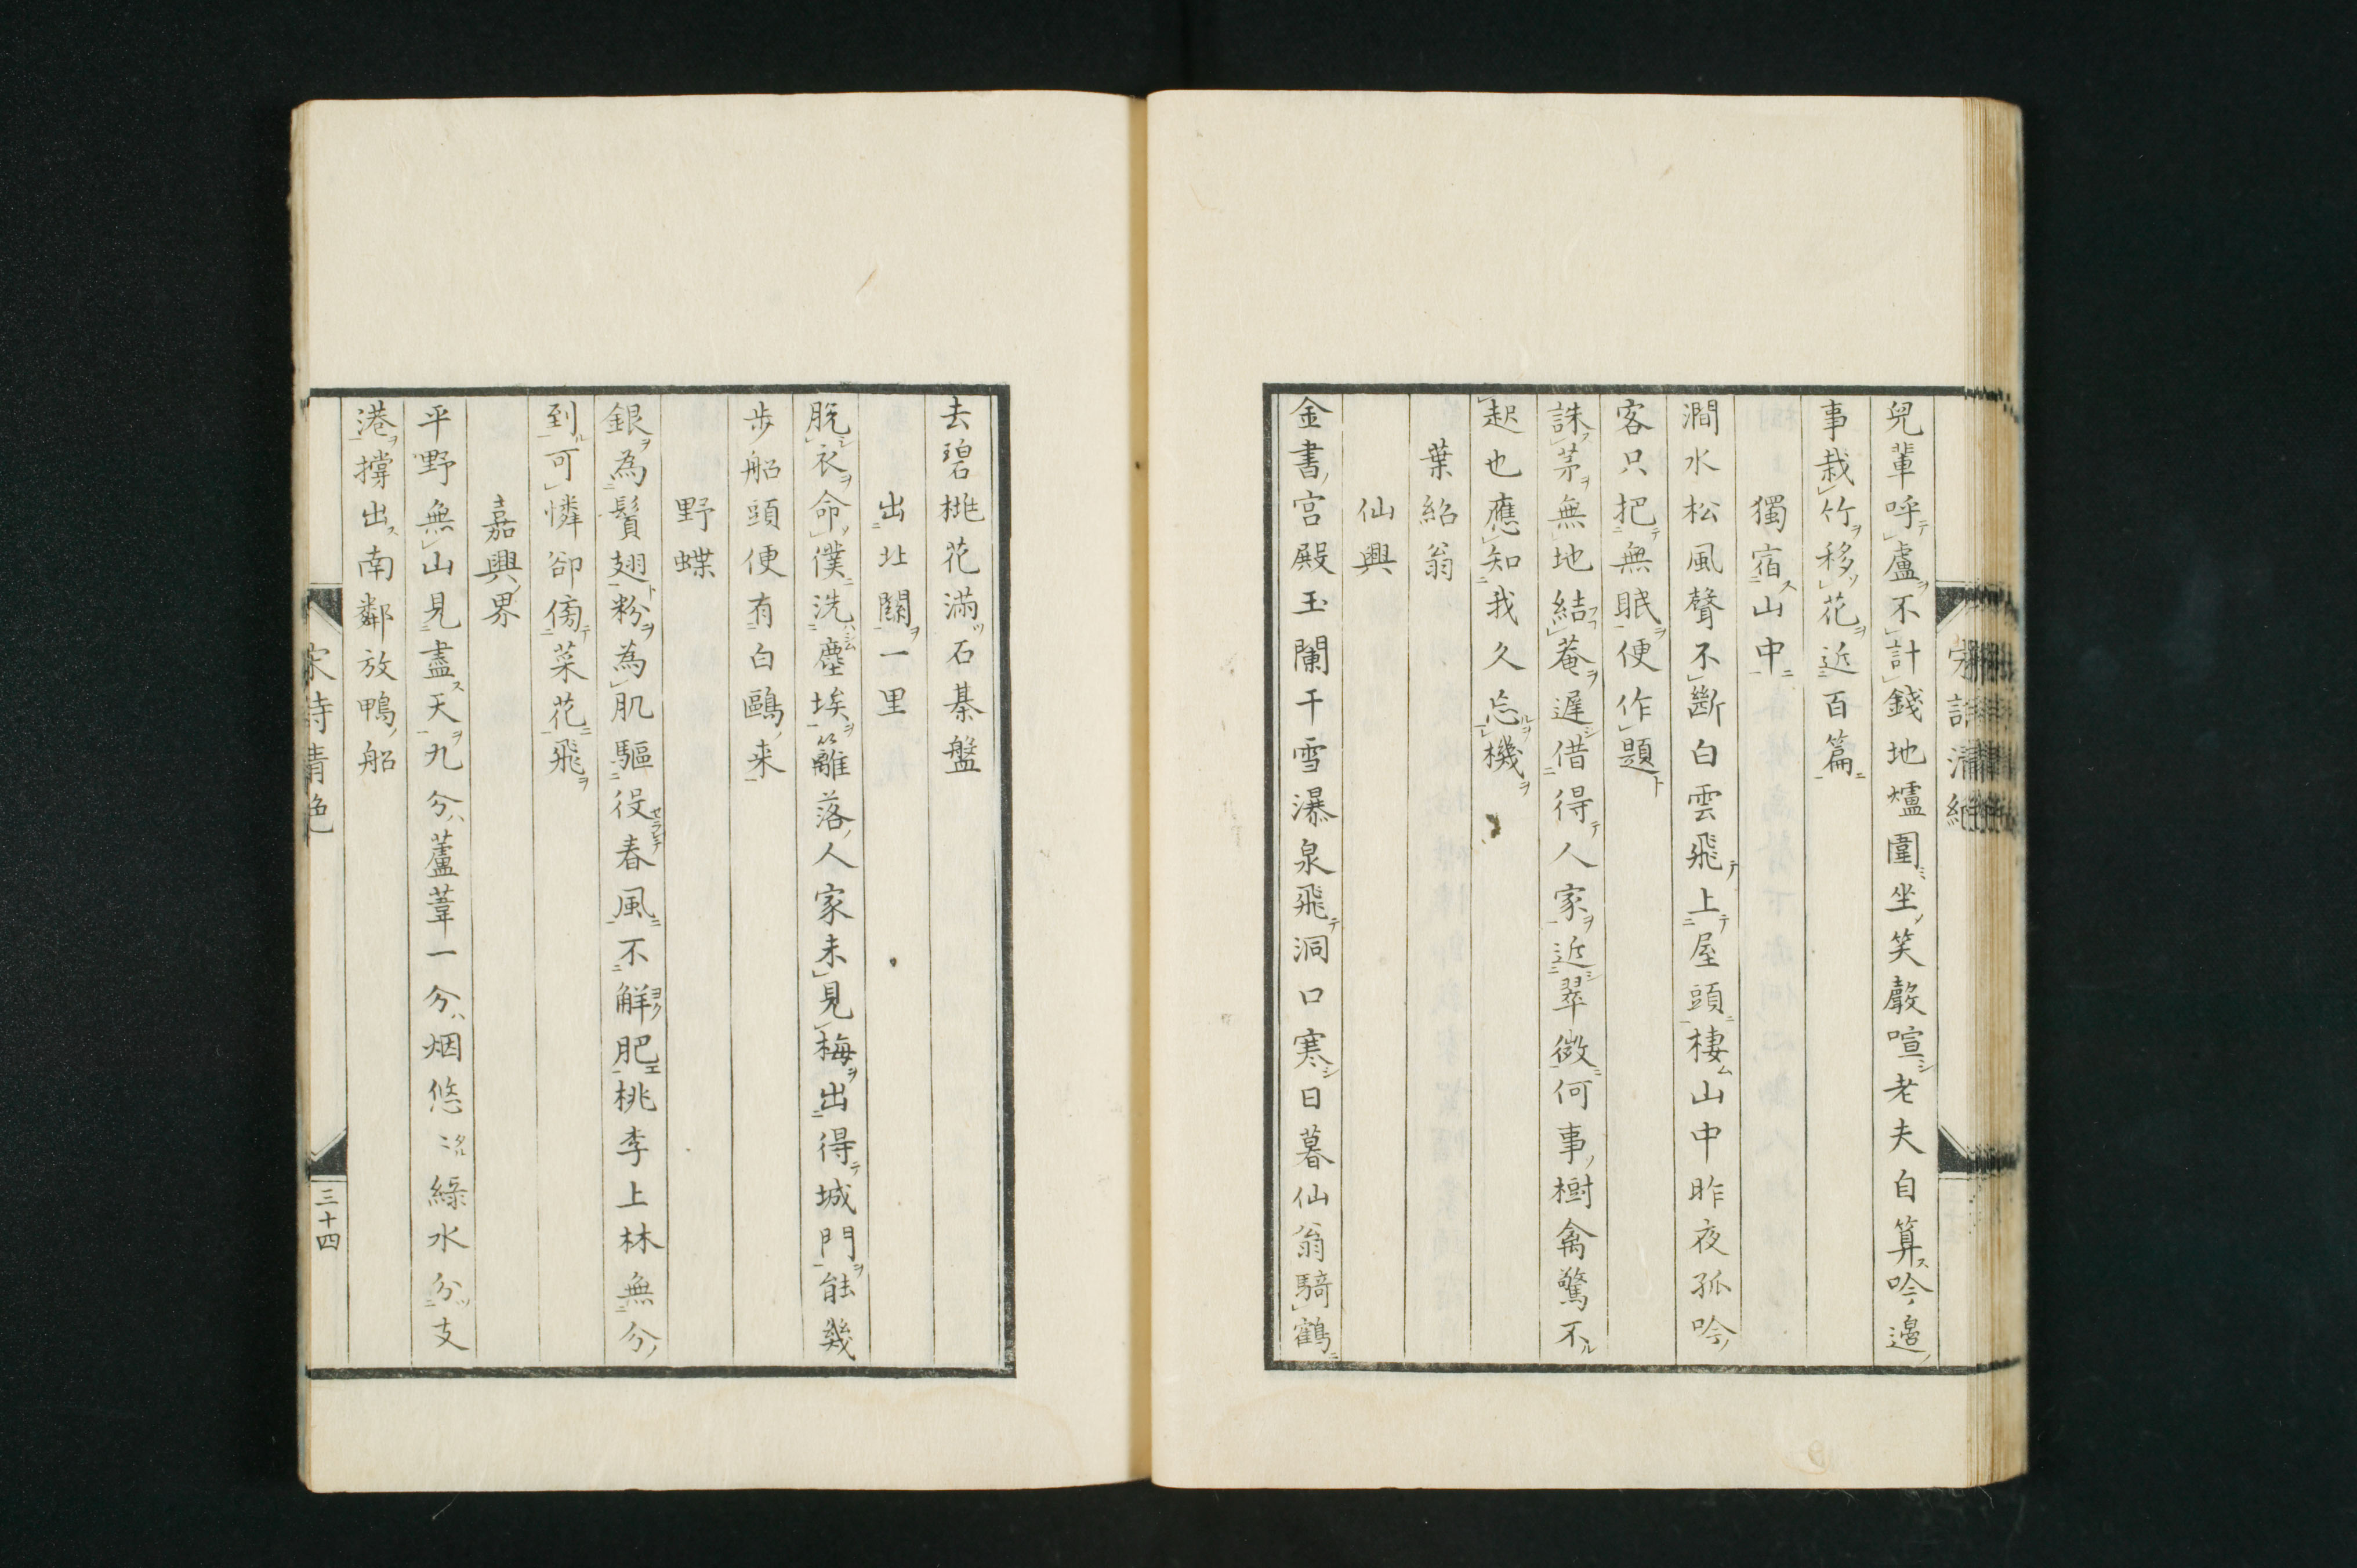 兒輩呼盧不計錢地爐圍坐笑聲喧老夫自算吟邊
事栽竹移花近百篇
獨宿山中
澗水松風聲不斷白雲飛上屋頭棲山中昨夜孤吟
客只把無眠便作題
誅茅無地結菴遲借得人家近翠微何事樹禽驚不
起也應知我久忘機
葉紹翁
仙興
金書宮殿玉闌干雪瀑泉飛洞口寒日暮仙翁騎鶴
去碧桃花滿石棊盤
出北關一里
脫衣命僕洗塵埃籬落人家未見梅出得城門能幾
步船頭便有白鷗来
野蝶
銀為鬚翅粉為肌驅役春風不解肥桃李上林無分
到可憐卻傍菜花飛
嘉興界
平野無山見盡天九分蘆葦一分烟悠〻綠水分支
港撐出南鄰放鴨船
宋詩清絶
三十四